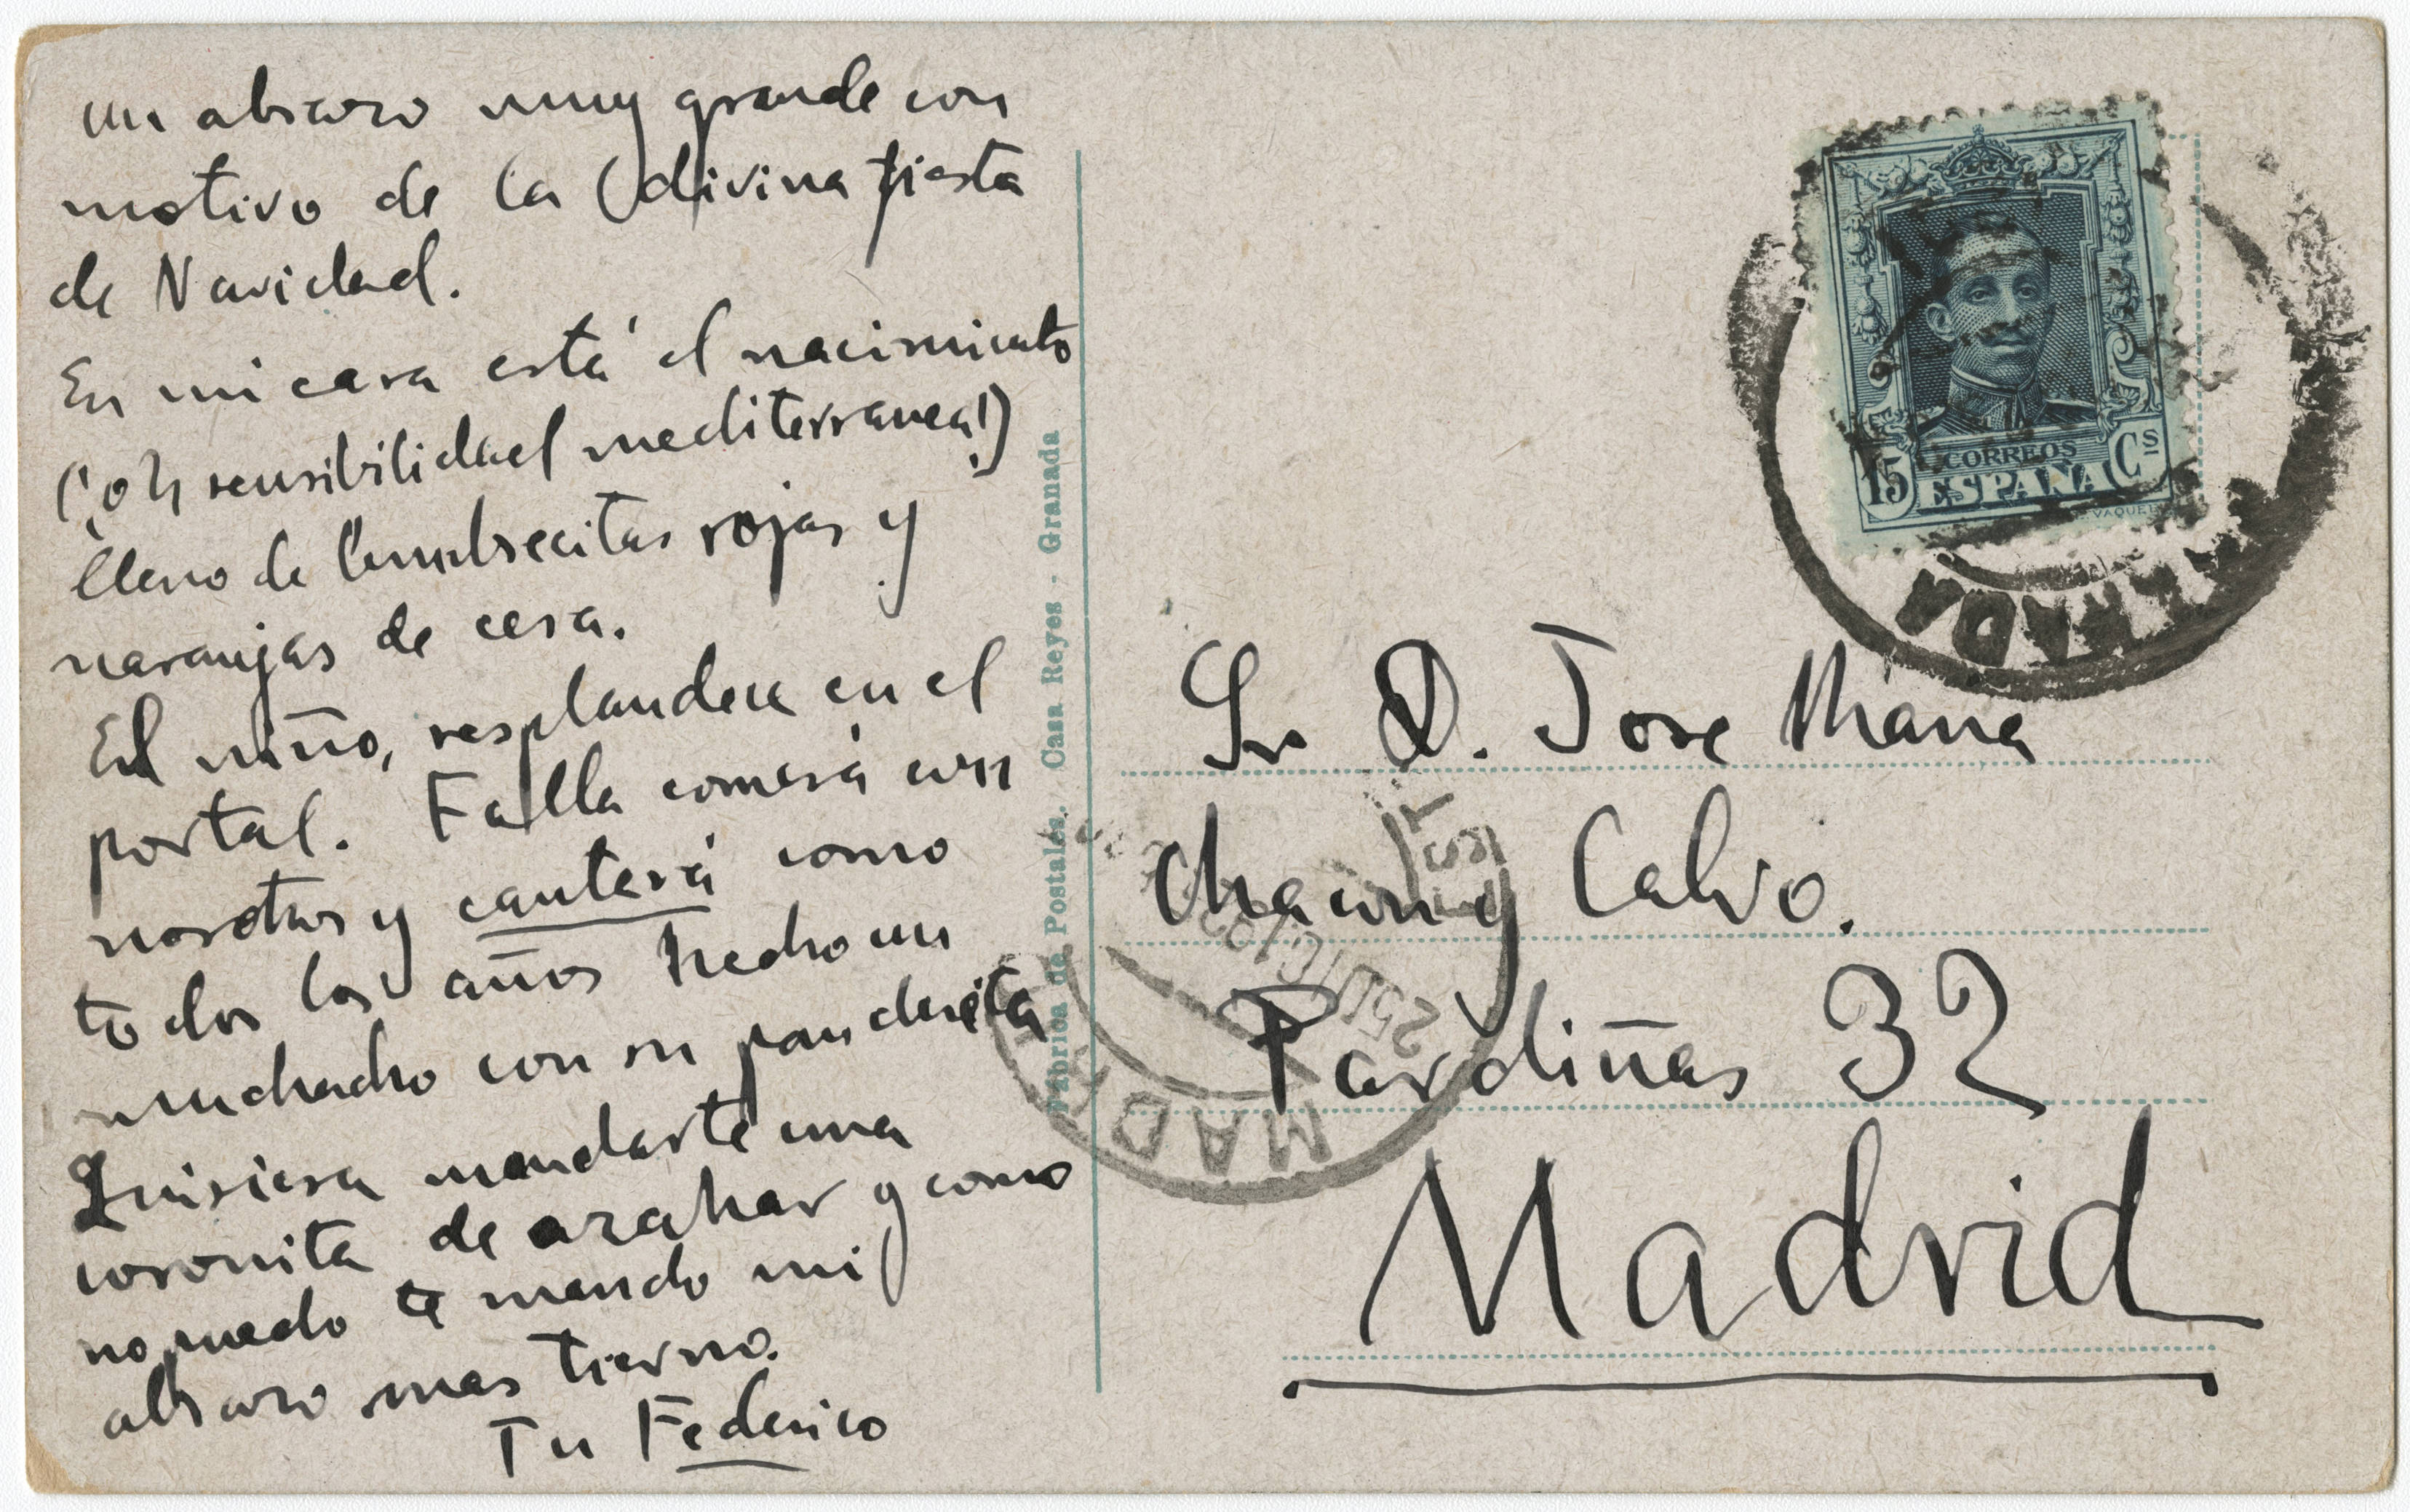 un abrazo muy grande con
motivo de la (divina fiesta
de Navidad.
En mi casa está el nacimiento
(¡oh sensibilidad mediterranea!)
lleno de lumbrecitas rojas y
naranjas de cera.
El niño, resplandece en el
portal. Falla comerá con
nosotros y cantará como
todos los años hecho un
muchacho con su pandereta
Quisiera mandarte una
coronita de azahar y como
no puedo te mando mi
abrazo mas tierno.
Tu Federico
Fábrica de Postales. Casa Reyes - Granada
CORREOS
15 ESPAÑA Cs
Sr D. Jose Maria
Chacon y Calvo.
Pardiñas 32
Madrid
MADRID
25 DIC